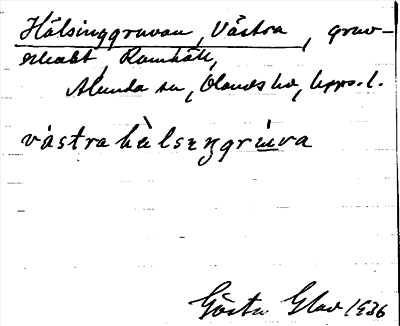 Hälsinggruvan, Västra, gruv-
schakt, Ramhäll,
Alunda sn, Olands hd, Upps. l.
västra hàlseŋgrùva
Gösta Glad 1936